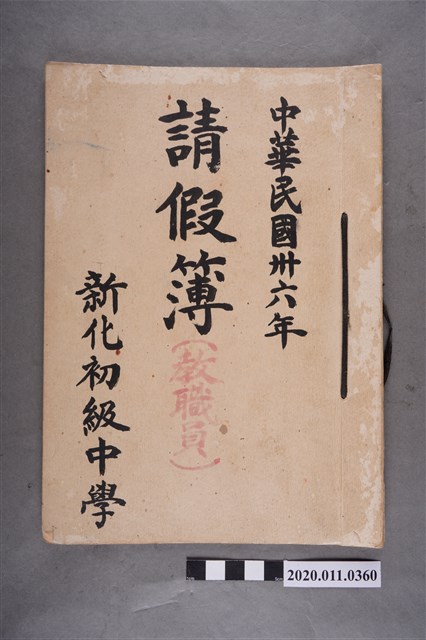 中華民國卅六年
請假簿
(教職員)
新化初級中學
2020.011.0360